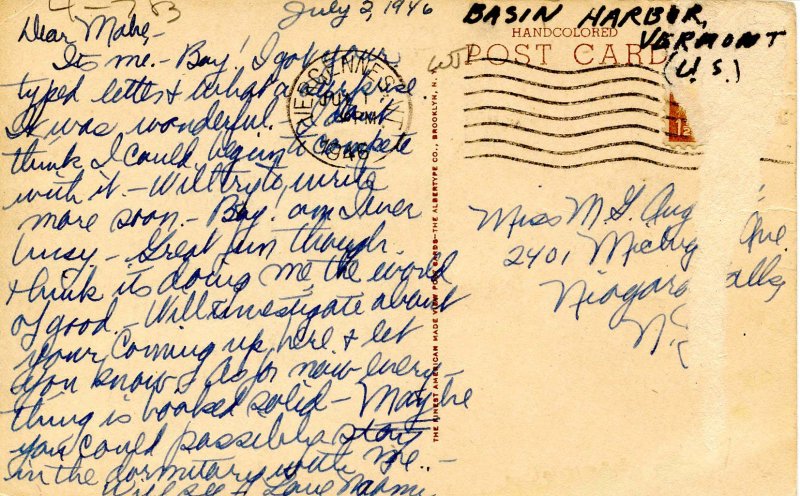 4-7-83
July 2, 1946
Dear Mabe,-
Its me.- Boy! I got your
typed letter & what a surprise
It was wonderful. I don't
think I could begin to compete
with it.- Will try to write
more soon.- Boy! am I ever
busy - Great fun though.
& think its doing me the world
of good.- Will investigate about
your coming up here & let
you know. As for now every-
thing is booked solid - Maybe
you could possibly stay
in the dormitory with me.-
Will see & Love Naomi
BASIN HARBOR,
VERMONT
(U.S.)
HANDCOLORED
POST CARD
VERGENNES, VT.
1946
THE FINEST AMERICAN MADE VIEW POST CARDS—THE ALBERTYPE CO., BROOKLYN, N.
Miss M. G. Aug
2401 Ave.
Niagara Falls,
N.